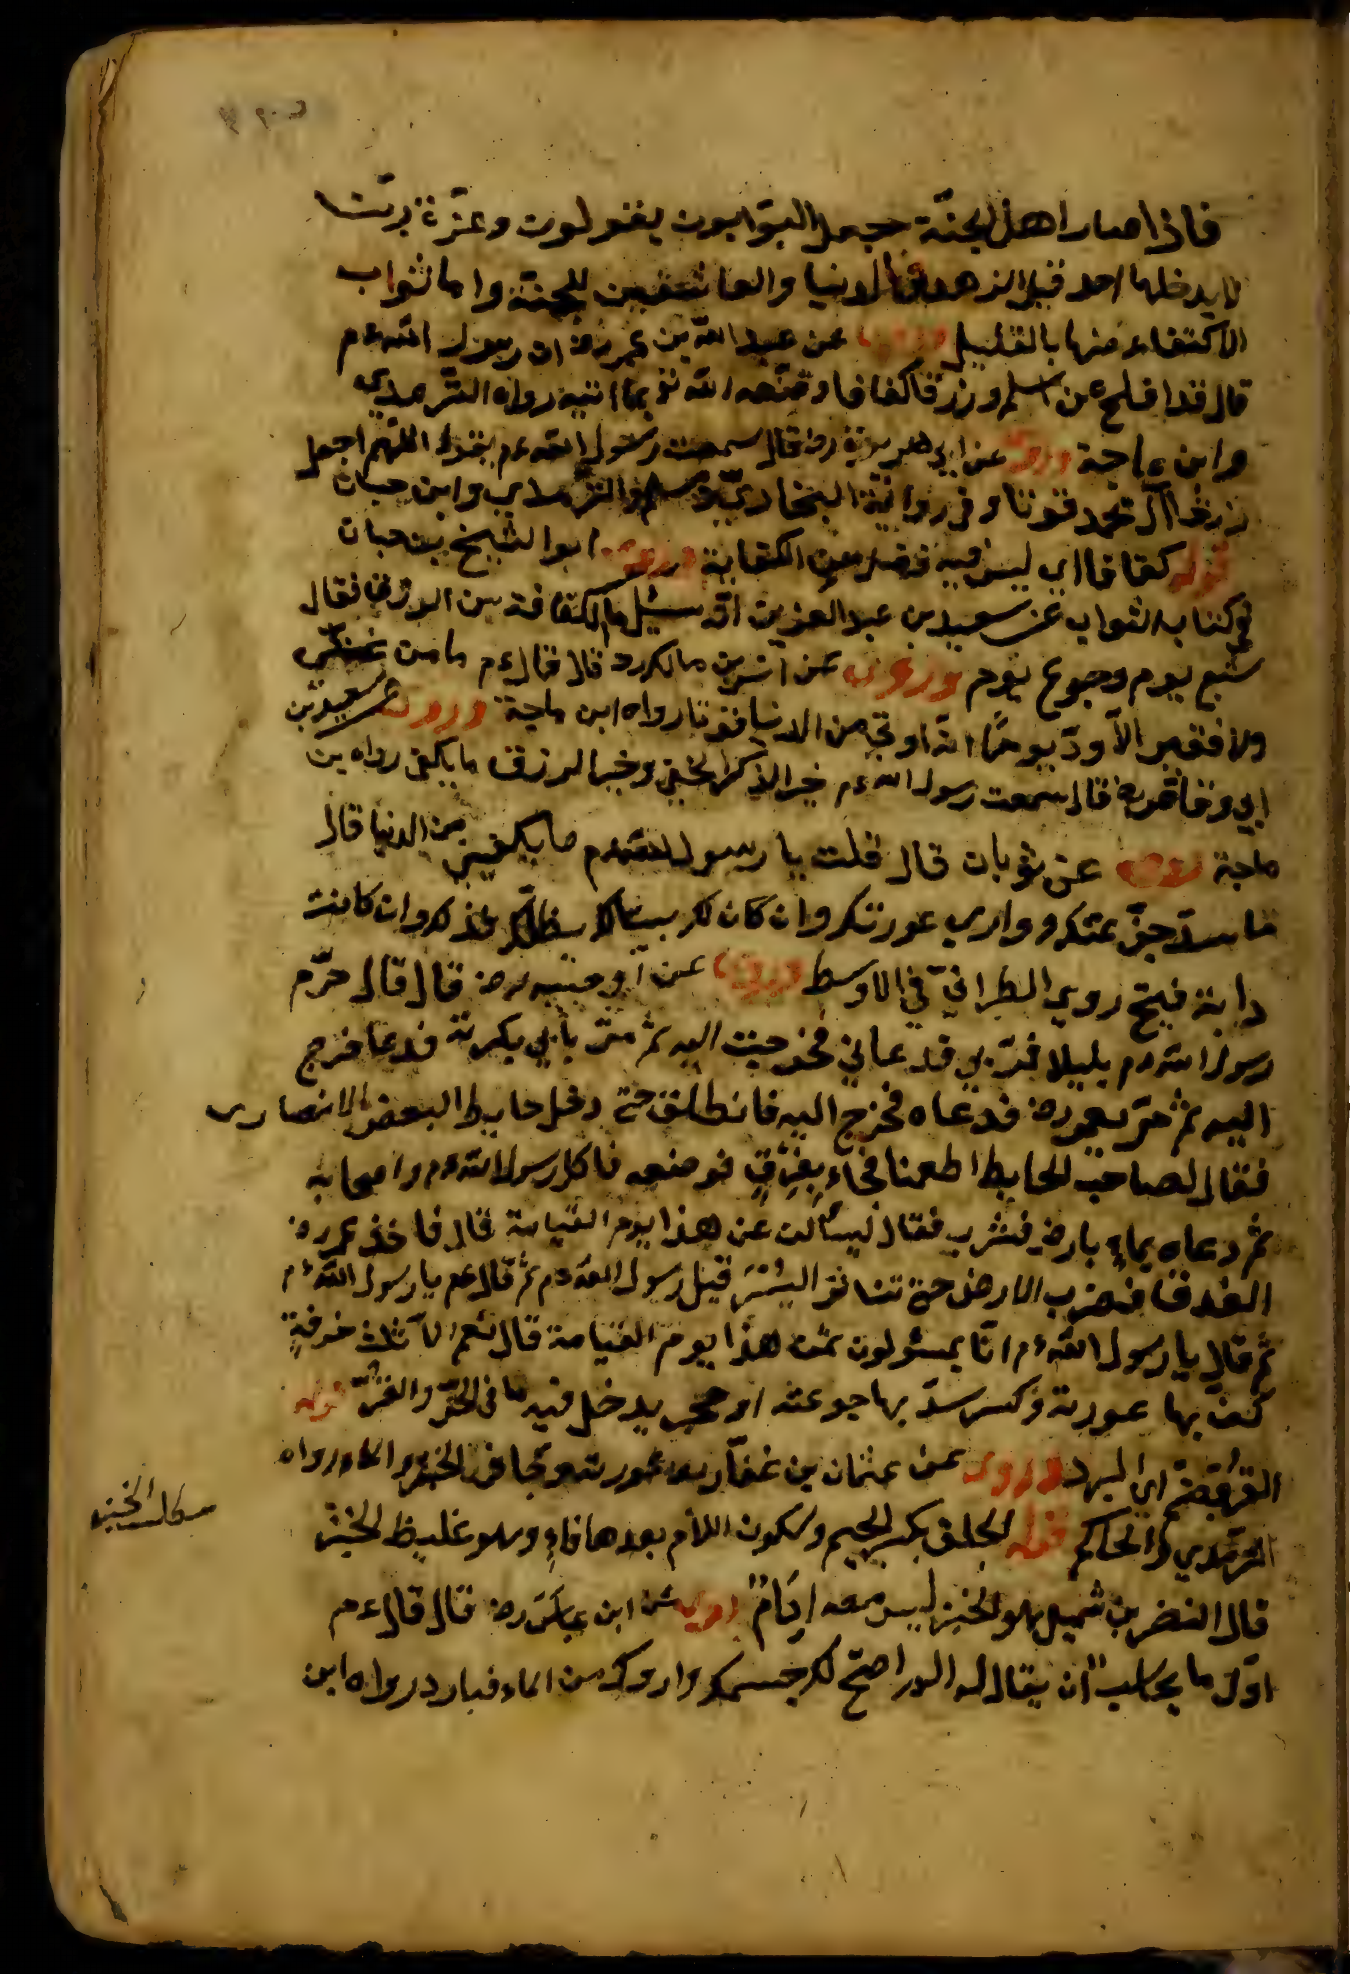 فاذا صار اهل الجنّة جعل البوّابون يقولون وعزّة ربّنا
لا يدخلها احد قبل الزهد في الدنيا والعاشقين للجنّة واما ثواب
الاكتفاء منها بالقليل وروى عن عبد الله بن عمر رض ان رسول الله ءم
قال قد افلح من اسلم ورزق كفافا وقنّعه الله تع بما اتيه رواه الترمدي
وابن ماجة وروى عن ابى هريرة رض قال سمعت رسول الله ءم يقول اللهم اجعل
رزق آل محمد قوتا وفي رواية البخاري ومسلم والترمدي وابن حبان
قوله كفافا اي ليس فيه فضل عن الكفاية وروى ابو الشيخ بن حبان
في كتابه الثواب عن سعيد بن عبد العزيز انه سئل ما الكفاف من الرزق فقال
شبع يوم وجوع يوم وروى عن انس بن مالك رد قال قال ءم ما من غنيّ
ولا فقير الا ودّ يوم انه اوتي من الدنيا قوتا رواه ابن ماجة وروى عن سعيد بن
ابي وقاص رض قال سمعت رسول الله ءم خير الذكر الخفي وخير الرزق ما يكفى رواه بن
ماجة روى عن ثوبان قال قلت يا رسول الله ءم ما يكفيني من الدنيا قال
ما سدّ جوعتك ووارى عورتك وان كان لك بيتا يظلّك فذلك وان كانت
دابة فبخ روى الطبراني في الاوسط وروى عن ابو عسيب رض قال قال خرّم
رسول الله ءم بليلا فمرّ بي فدعاني فخرجت اليه ثم مرّ بابي بكر ته فدعا فخرج
اليه ثم مرّ بعمر رض فدعاه فخرج اليه فانطلق حتى دخل حايط البعض الانصارى
فقال لصاحب الحايط اطعمنا فجاء بعزق فوضعه فاكل رسول الله ءم واصحابه
ثم دعاه بماء بارض فشرب فقال ليسألن عن هذا يوم القيامة قال فاخذ عمر رض
العذق فضرب الارض حتى تناثر البسْر قبل رسول الله ءم ثم قال عم يا رسول الله ءم
ثم قال يا رسول الله ءم انّا لمسئولون عن هذا يوم القيامة قال نعم الا ثلث خرقة
كفّ بها عورته وكسر سدّ بها جوعته او حجر يدخل فيه ما في الحرّ والقرّ قوله
القرّ بضمّ اي البرد وروى عن عثمان بن عفّان
الترمدي والحاكم قوله الجلف بكر الجيم وسكون اللام بعدها فاء وهو غليظ الخبز
قال النضر بن شميل هو الخبز ليس معه اِدَامٌ روى عن ابن عباس رض قال قال ءم
اوّل ما يحاسب ان يقال له الم اصحّ لك جسمك واروك من الماء فبارد رواه ابن